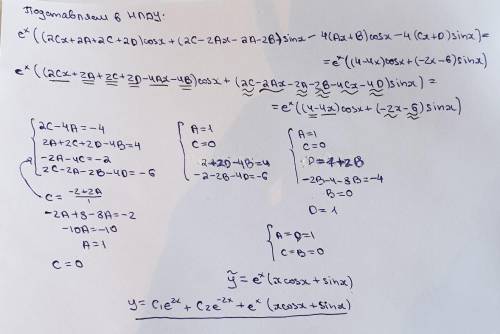 Подставляем в НЛДУ:
e^x((2Cx+2A+2C+2D)cosx+(2C-2Ax-2A-2B)sinx-4(Ax+B)cosx-4(Cx+D)sinx)=
=e^x((4-4x)cosx+(-2x-6)sinx)
e^x((2Cx+2A+2C+2D-4Ax-4B)cosx+(2C-2Ax-2A-2B-4Cx-4D)sinx)=
=e^x((4-4x)cosx+(-2x-6)sinx)
2C-4A=-4
2A+2C+2D-4B=4
-2A-4C=-2
2C-2A-2B-4D=-6
C=(-2+2A)/1
-2A+8-8A=-2
-10A=-10
A=1
C=0
A=1
C=0
2+2D-4B=4
-2-2B-4D=-6
A=1
C=0
D=1+2B
-2B-4-8B=-4
B=0
D=1
A=D=1
C=B=0
ỹ=e^x(xcosx+sinx)
y=C₁e^2x+C₂e^-2x+e^x(xcosx+sinx)